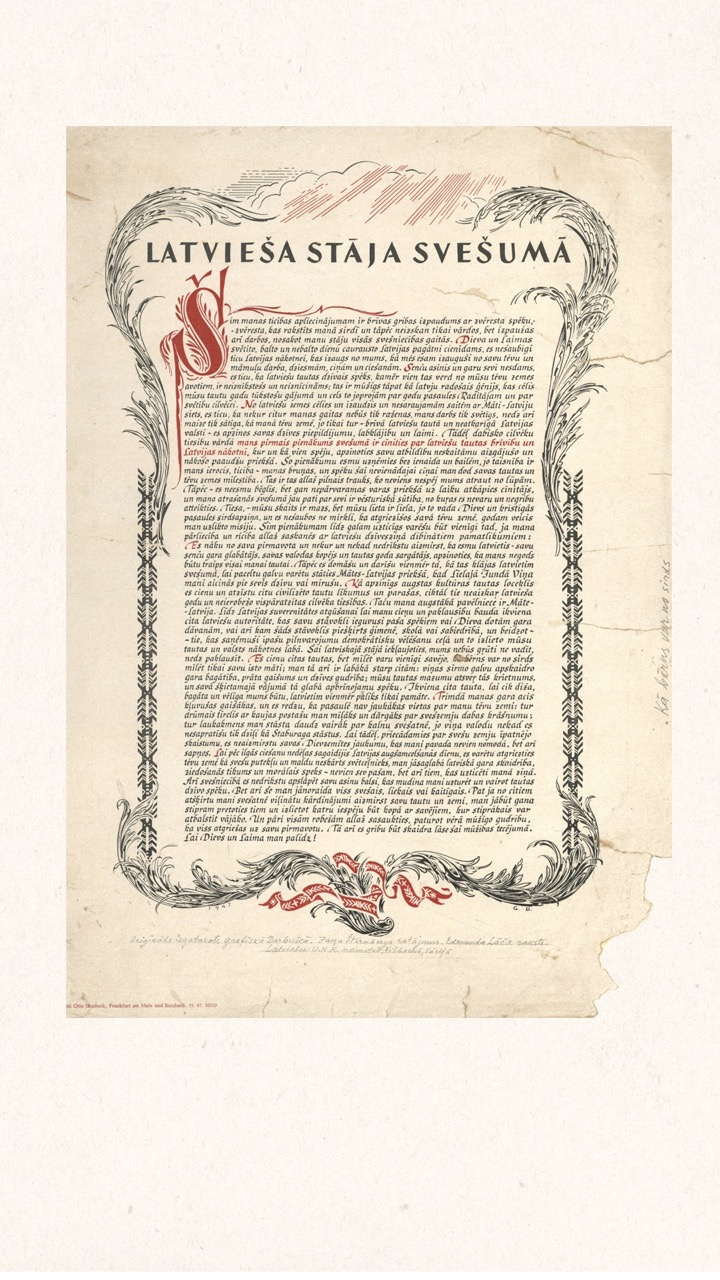 LATVIEŠA STĀJA SVEŠUMĀ
Šim manas ticības apliecinājumam ir brīvas gribas izpaudums ar zvēresta spēku,-
-zvēresta, kas rakstīts manā sirdī un tāpēc neizskan tikai vārdos, bet izpaužas
arī darbos, nosakot manu stāju visās svešniecības gaitās. Dieva un Laimas
svētīto, balto un nebalto dienu caurausto Latvijas pagātni cienīdams, es nešaubīgi
ticu Latvijas nākotnei, kas izaugs no mums, kā mēs esam izauguši no savu tēvu un
māmuļu darba, dziesmām, cīņām un ciešanām. Senču asinis un garu sevī nesdams,
es ticu, ka latviešu tautas dzīvais spēks, kamēr vien tas verd no mūsu tēvu zemes
avotiem, ir neiznīkstošs un neiznīcināms; tas ir mūžīgs tāpat kā latvju radošais ģēnijs, kas cēlis
mūsu tautu gadu tūkstošu gājumā un cels to joprojām par godu pasaules Radītājam un par
svētību cilvēcei. No latviešu zemes cēlies un izaudzis un nesaraujamām saitēm ar Māti-Latviju
siets, es ticu, ka nekur citur manas gaitas nebūs tik raženas, mans darbs tik svētīgs, neds arī
maize tik sātīga, kā manā tēvu zemē, jo tikai tur - brīvā latviešu tautā un neatkarīgā Latvijas
valstī - es apzinos savas dzīves piepildījumu, labklājību un laimi. Tādēļ dabisko cilvēku
tiesību vārdā mans pirmais pienākums svešumā ir cīnīties par latviešu tautas brīvību un
Latvijas nākotni, kur un kā vien spēju, apzinoties savu atbildību neskaitāmu aizgājušo un
nākošo paaudžu priekšā. Šo pienākumu esmu uzņēmies bez ienaida un bailēm, jo taisnība ir
mans ierocis, ticība - manas bruņas, un spēku šai nevienādajai cīņai man dod savas tautas un
tēvu zemes mīlestība. Tas ir tas allaž pilnais trauks, ko neviens nespēj mums atraut no lūpām.
Tāpēc - es neesmu bēglis, bet gan nepārvaramas varas priekšā uz laiku atkāpies cīnītājs,
un mana atrašanās svešumā jau pati par sevi ir vēsturiskā sūtība, no kuras es nevaru un negribu
atteikties. Tiesa, - mūsu skaits ir mazs, bet mūsu lieta ir liela, jo to vada Dievs un kristīgās
pasaules sirdsapziņa, un es nešaubos ne mirkli, ka atgriezīšos savā tēvu zemē, godam veicis
man uzlikto misiju. Šim pienākumam līdz galam uzticīgs varēšu būt vienīgi tad, ja mana
pārliecība un rīcība allaž saskanēs ar latviešu dzīvesziņā dibinātiem pamatlikumiem:
Es nāku no sava pirmavota un nekur un nekad nedrīkstu aizmirst, ka esmu latvietis - savu
senču gara glabātājs, savas valodas kopējs un tautas goda sargātājs, apzinoties, ka mans negods
būtu traips visai manai tautai. Tāpēc es domāšu un darīšu vienmēr tā, kā tas klājas latvietim
svešumā, lai paceltu galvu varētu stāties Mātes-Latvijas priekšā, kad Lielajā Jundā Viņa
mani aicinās pie sevis dzīvu vai mirušu. Kā apzinīgs augstas kultūras tautas loceklis
es cienu un atzīstu citu civilizēto tautu likumus un parašas, ciktāl tie neaizkar latvieša
godu un neierobežo vispāratzītas cilvēka tiesības. Taču mana augstākā pavēlniece ir Māte-
-Latvija. Līdz Latvijas suverenitātes atgūšanai lai manu cieņu un paklausību bauda ikviena
cita latviešu autoritāte, kas savu stāvokli ieguvusi paša spēkiem vai Dieva dotām gara
dāvanām, vai arī kam šāds stāvoklis piešķirts ģimenē, skolā vai sabiedrībā, un beidzot -
- tie, kas saņēmuši īpašu pilnvarojumu demokrātisku vēlēšanu ceļā un to izlieto mūsu
tautas un valsts nākotnes labā. Šai latviskajā stājā iekļaujoties, mums nebūs grūti ne vadīt,
neds paklausīt. Es cienu citas tautas, bet mīlēt varu vienīgi savējo. Ikbērns var no sirds
mīlēt tikai savu īsto māti; man tā arī ir labākā starp citām: viņas sirmo galvu apskaidro
gara bagātība, prāta gaišums un dzīves gudrība; mūsu tautas mazumu atsver tās krietnums,
un savā šķietamajā vājumā tā glabā apbrīnojamu spēku. Ikviena cita tauta, lai cik diža,
bagāta un vēlīga mums būtu, latvietim vienmēr paliks tikai pamāte. Trimdā manas gara acis
kļuvušas gaišākas, un es redzu, ka pasaulē nav jaukākas vietas par manu tēvu zemi: tur
drūmais tīrelis ar kaujas postažu man mīļāks un dārgāks par svešzemju dabas krāšņumu;
tur laukakmens man stāsta daudz vairāk par kalnu svešatnē, jo viņa valodu nekad es
nesapratīšu tik dziļi kā Staburaga stāstus. Lai tādēļ, priecādamies par svešu zemju īpatnējo
skaistumu, es neaizmirstu savas Dievzemītes jaukumu, kas mani pavada nevien nomodā, bet arī
sapņos. Lai pēc ilgās ciešanu nedēļas sagaidījis Latvijas augšamcelšanās dienu, es varētu atgriezties
tēvu zemē kā svešu putekļu un maldu neskārts svētceļnieks, man jāsaglabā latviskā gara skaidrība,
ziedošanās tikums un morālais spēks - nevien sev pašam, bet arī tiem, kas uzticēti manā ziņā.
Arī svešniecībā es nedrīkstu apslāpēt savu asiņu balsi, kas mudina mani uzturēt un vairot tautas
dzīvo spēku. Bet arī še man jānoraida viss svešais, liekais vai kaitīgais. Pat ja no citiem
atšķirtu mani svešatnē viļinātu kārdinājumi aizmirst savu tautu un zemi, man jābūt gana
stipram pretoties tiem un izlietot katru iespēju būt kopā ar savējiem, kur stiprākais var
atbalstīt vājāko. Un pāri visām robežām allaž sasaukties, paturot vērā mūžīgo gudrību,
ka viss atgriežas uz savu pirmavotu. Tā arī es gribu būt skaidra lāse šai mūžības tecējumā.
Lai Dievs un Laima man palīdz!
G. D.
Oriģināls izgatavots grafiskā Darbnīcā. Jāņa Šternberga zīmējums. Edmunda Lāča raksts.
Otto Hambock, Frankfurt am Main und Butzbach. 11. 47. 3000